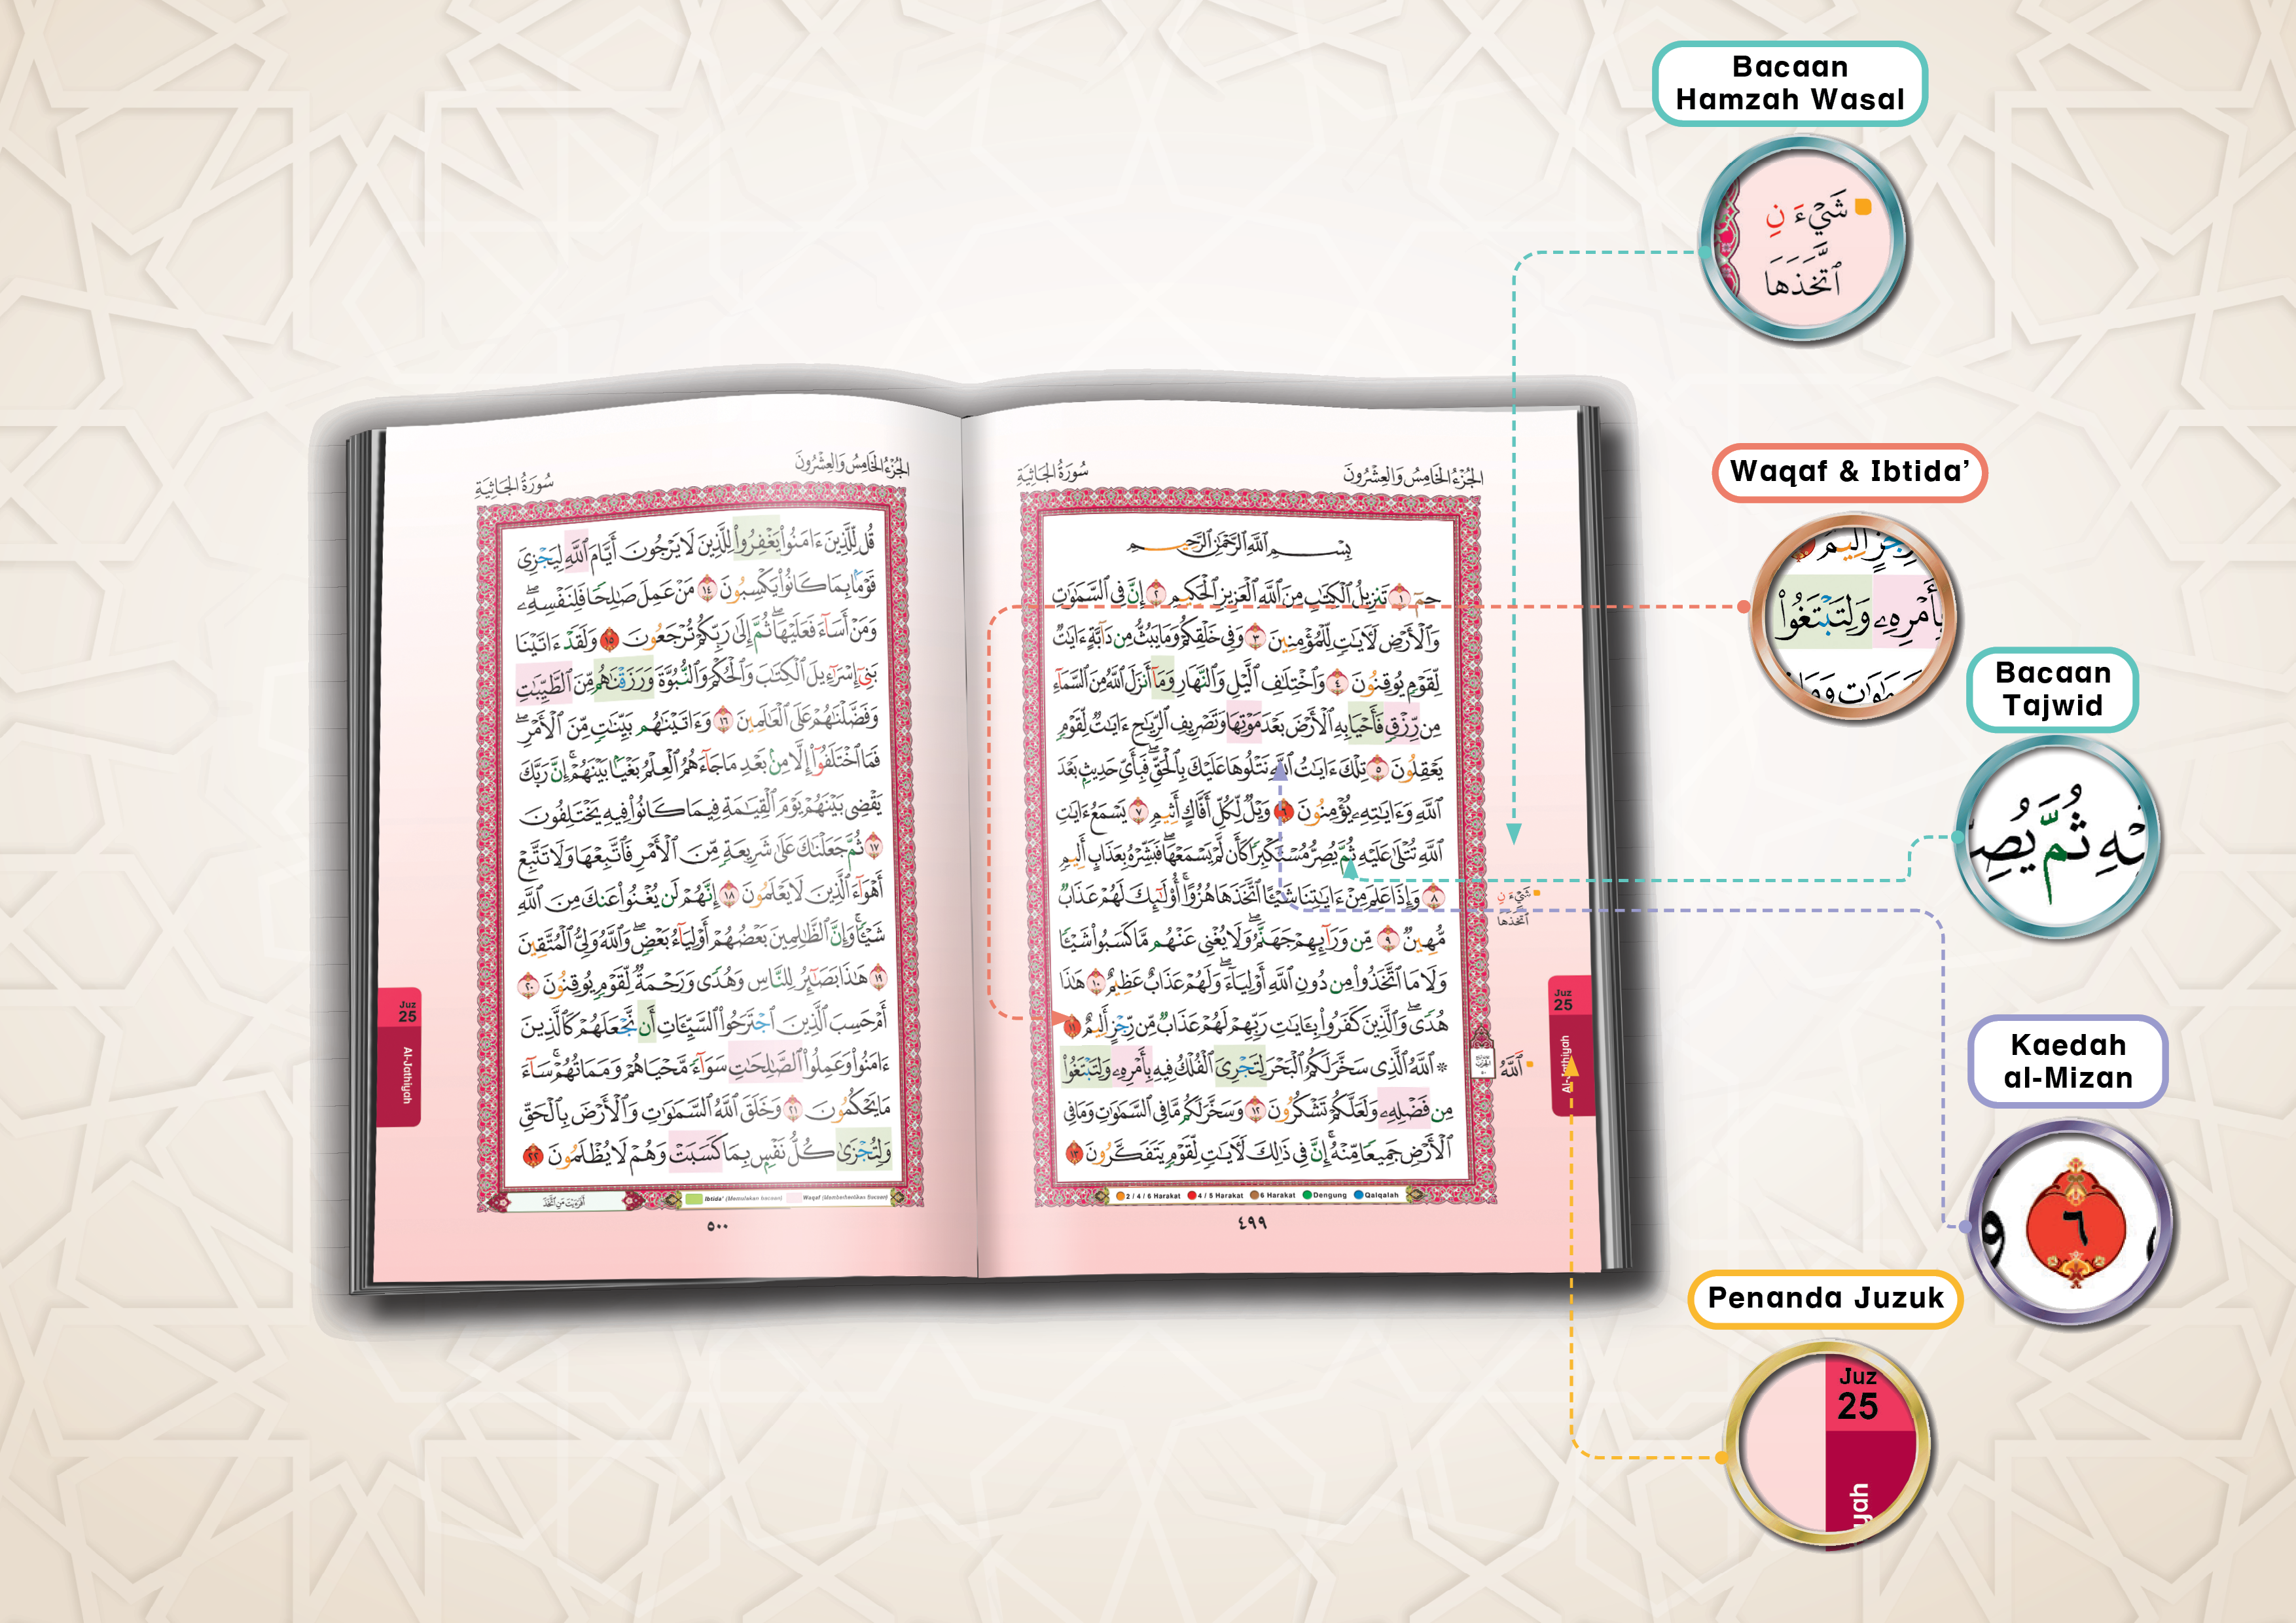 Bacaan
Hamzah Wasal
شَيْءَ نِ
ٱتَّخَذَهَا
Waqaf & Ibtida’
بِأَمْرِهِۦ وَلِتَبْتَغُوا۟
Bacaan
Tajwid
ثُمَّ
Kaedah
al-Mizan
٦
Penanda Juzuk
Juz
25
yah
الجُزْءُ الخَامِسُ وَالعِشْرُونَ
سُورَةُ الجَاثِيَةِ
بِسْمِ ٱللَّهِ ٱلرَّحْمَٰنِ ٱلرَّحِيمِ
حمٓ ١ تَنزِيلُ ٱلْكِتَٰبِ مِنَ ٱللَّهِ ٱلْعَزِيزِ ٱلْحَكِيمِ ٢ إِنَّ فِى ٱلسَّمَٰوَٰتِ
وَٱلْأَرْضِ لَءَايَٰتٍ لِّلْمُؤْمِنِينَ ٣ وَفِى خَلْقِكُمْ وَمَا يَبُثُّ مِن دَآبَّةٍ ءَايَٰتٌ
لِّقَوْمٍ يُوقِنُونَ ٤ وَٱخْتِلَٰفِ ٱلَّيْلِ وَٱلنَّهَارِ وَمَآ أَنزَلَ ٱللَّهُ مِنَ ٱلسَّمَآءِ
مِن رِّزْقٍ فَأَحْيَا بِهِ ٱلْأَرْضَ بَعْدَ مَوْتِهَا وَتَصْرِيفِ ٱلرِّيَٰحِ ءَايَٰتٌ لِّقَوْمٍ
يَعْقِلُونَ ٥ تِلْكَ ءَايَٰتُ ٱللَّهِ نَتْلُوهَا عَلَيْكَ بِٱلْحَقِّ ۖ فَبِأَىِّ حَدِيثٍۭ بَعْدَ
ٱللَّهِ وَءَايَٰتِهِۦ يُؤْمِنُونَ ٦ وَيْلٌ لِّكُلِّ أَفَّاكٍ أَثِيمٍ ٧ يَسْمَعُ ءَايَٰتِ
ٱللَّهِ تُتْلَىٰ عَلَيْهِ ثُمَّ يُصِرُّ مُسْتَكْبِرًا كَأَن لَّمْ يَسْمَعْهَا ۖ فَبَشِّرْهُ بِعَذَابٍ أَلِيمٍ
٨ وَإِذَا عَلِمَ مِنْ ءَايَٰتِنَا شَيْـًٔا ٱتَّخَذَهَا هُزُوًا ۚ أُو۟لَٰٓئِكَ لَهُمْ عَذَابٌ
مُّهِينٌ ٩ مِّن وَرَآئِهِمْ جَهَنَّمُ ۖ وَلَا يُغْنِى عَنْهُم مَّا كَسَبُوا۟ شَيْـًٔا
وَلَا مَا ٱتَّخَذُوا۟ مِن دُونِ ٱللَّهِ أَوْلِيَآءَ ۖ وَلَهُمْ عَذَابٌ عَظِيمٌ ١٠ هَٰذَا
هُدًى ۖ وَٱلَّذِينَ كَفَرُوا۟ بِـَٔايَٰتِ رَبِّهِمْ لَهُمْ عَذَابٌ مِّن رِّجْزٍ أَلِيمٌ ١١
۞ ٱللَّهُ ٱلَّذِى سَخَّرَ لَكُمُ ٱلْبَحْرَ لِتَجْرِىَ ٱلْفُلْكُ فِيهِ بِأَمْرِهِۦ وَلِتَبْتَغُوا۟
مِن فَضْلِهِۦ وَلَعَلَّكُمْ تَشْكُرُونَ ١٢ وَسَخَّرَ لَكُم مَّا فِى ٱلسَّمَٰوَٰتِ وَمَا فِى
ٱلْأَرْضِ جَمِيعًا مِّنْهُ ۚ إِنَّ فِى ذَٰلِكَ لَءَايَٰتٍ لِّقَوْمٍ يَتَفَكَّرُونَ ١٣
شَيْءَ نِ
ٱتَّخَذَهَا
ٱللَّهُ
Juz
25
Al-Jathiyah
2 / 4 / 6 Harakat 4 / 5 Harakat 6 Harakat Dengung Qalqalah
٤٩٩
الجُزْءُ الخَامِسُ وَالعِشْرُونَ
سُورَةُ الجَاثِيَةِ
قُل لِّلَّذِينَ ءَامَنُوا۟ يَغْفِرُوا۟ لِلَّذِينَ لَا يَرْجُونَ أَيَّامَ ٱللَّهِ لِيَجْزِىَ
قَوْمًۢا بِمَا كَانُوا۟ يَكْسِبُونَ ١٤ مَنْ عَمِلَ صَٰلِحًا فَلِنَفْسِهِۦ ۖ
وَمَنْ أَسَآءَ فَعَلَيْهَا ۖ ثُمَّ إِلَىٰ رَبِّكُمْ تُرْجَعُونَ ١٥ وَلَقَدْ ءَاتَيْنَا
بَنِىٓ إِسْرَٰٓءِيلَ ٱلْكِتَٰبَ وَٱلْحُكْمَ وَٱلنُّبُوَّةَ وَرَزَقْنَٰهُم مِّنَ ٱلطَّيِّبَٰتِ
وَفَضَّلْنَٰهُمْ عَلَى ٱلْعَٰلَمِينَ ١٦ وَءَاتَيْنَٰهُم بَيِّنَٰتٍ مِّنَ ٱلْأَمْرِ ۖ
فَمَا ٱخْتَلَفُوٓا۟ إِلَّا مِنۢ بَعْدِ مَا جَآءَهُمُ ٱلْعِلْمُ بَغْيًۢا بَيْنَهُمْ ۚ إِنَّ رَبَّكَ
يَقْضِى بَيْنَهُمْ يَوْمَ ٱلْقِيَٰمَةِ فِيمَا كَانُوا۟ فِيهِ يَخْتَلِفُونَ
١٧ ثُمَّ جَعَلْنَٰكَ عَلَىٰ شَرِيعَةٍ مِّنَ ٱلْأَمْرِ فَٱتَّبِعْهَا وَلَا تَتَّبِعْ
أَهْوَآءَ ٱلَّذِينَ لَا يَعْلَمُونَ ١٨ إِنَّهُمْ لَن يُغْنُوا۟ عَنكَ مِنَ ٱللَّهِ
شَيْـًٔا ۚ وَإِنَّ ٱلظَّٰلِمِينَ بَعْضُهُمْ أَوْلِيَآءُ بَعْضٍ ۖ وَٱللَّهُ وَلِىُّ ٱلْمُتَّقِينَ
١٩ هَٰذَا بَصَٰٓئِرُ لِلنَّاسِ وَهُدًى وَرَحْمَةٌ لِّقَوْمٍ يُوقِنُونَ ٢٠
أَمْ حَسِبَ ٱلَّذِينَ ٱجْتَرَحُوا۟ ٱلسَّيِّـَٔاتِ أَن نَّجْعَلَهُمْ كَٱلَّذِينَ
ءَامَنُوا۟ وَعَمِلُوا۟ ٱلصَّٰلِحَٰتِ سَوَآءً مَّحْيَاهُمْ وَمَمَاتُهُمْ ۚ سَآءَ
مَا يَحْكُمُونَ ٢١ وَخَلَقَ ٱللَّهُ ٱلسَّمَٰوَٰتِ وَٱلْأَرْضَ بِٱلْحَقِّ
وَلِتُجْزَىٰ كُلُّ نَفْسٍۭ بِمَا كَسَبَتْ وَهُمْ لَا يُظْلَمُونَ ٢٢
Juz
25
Al-Jathiyah
أَفَرَءَيْتَ مَنِ ٱتَّخَذَ
Ibtida' (Memulakan bacaan) Waqaf (Memberhentikan Bacaan)
٥٠٠